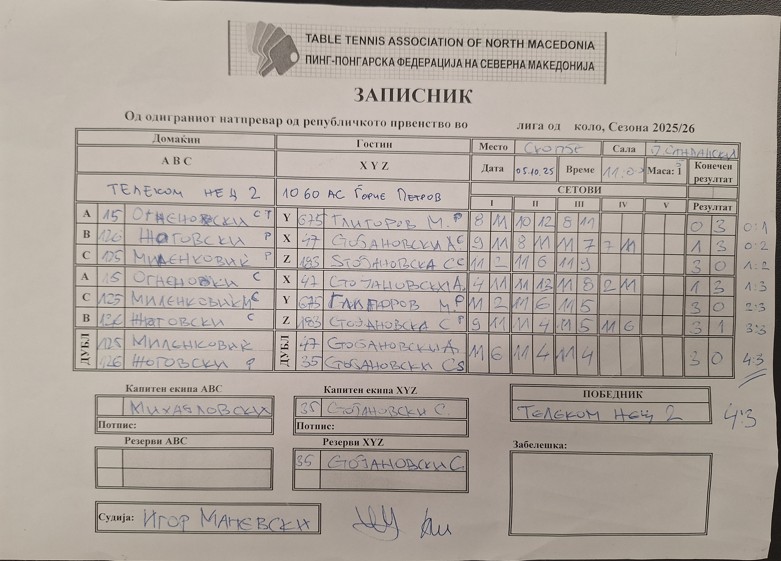 TABLE TENNIS ASSOCIATION OF NORTH MACEDONIA
ПИНГ-ПОНГАРСКА ФЕДЕРАЦИЈА НА СЕВЕРНА МАКЕДОНИЈА
ЗАПИСНИК
Од одиграниот натпревар од републичкото првенство во лига од коло, Сезона 2025/26
Домаќин Гостин Место СКОПЈЕ Сала
A B C X Y Z Дата 05.10.25 Време Маса: Конечен резултат
ТЕЛЕКОМ НЕЦ 2 1060 АС ЃОРЧЕ ПЕТРОВ СЕТОВИ
I II III IV V Резултат
A 15 ОГНЕНОВСКИ Y 675 ГЛИГОРОВ М. 8 11 10 12 8 11 0 3 0:1
B 126 ЖОГОВСКИ X 47 СТОЈАНОВСКИ 9 11 8 11 11 7 7 11 1 3 0:2
C 125 МИЛЕНКОВИЌ Z 183 СТОЈАНОВСКА С 11 2 11 6 11 9 3 0 1:2
A 15 ОГНЕНОВСКИ С X 47 СТОЈАНОВСКИ А. 4 11 11 13 11 8 2 11 1 3 1:3
C 125 МИЛЕНКОВИЌ Y 675 ГЛИГОРОВ М. 11 2 11 6 11 5 3 0 2:3
B 126 ЖОГОВСКИ С Z 183 СТОЈАНОВСКА С 9 11 11 4 11 5 11 6 3 1 3:3
ДУБЛ 125 МИЛЕНКОВИЌ ДУБЛ 47 СТОЈАНОВСКИ А. 11 6 11 4 11 4 3 0 4:3
126 ЖОГОВСКИ 35 СТОЈАНОВСКИ С
Капитен екипа ABC Капитен екипа XYZ ПОБЕДНИК
МИХАЈЛОВСКИ 35 СТОЈАНОВСКИ С. ТЕЛЕКОМ НЕЦ 2 4:3
Потпис: Потпис:
Резерви ABC Резерви XYZ Забелешка:
35 СТОЈАНОВСКИ С
Судија: ИГОР МАНЕВСКИ